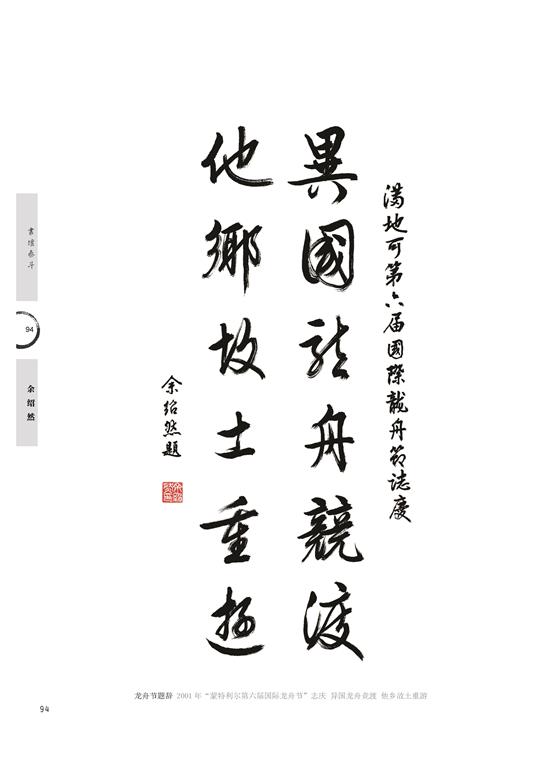 滿地可第六届國際龍舟節誌慶
異國龍舟競渡
他鄉故土重遊
余紹然題
書壇泰斗
94
余绍然
龙舟节题辞 2001 年“蒙特利尔第六届国际龙舟节”志庆 异国龙舟竞渡 他乡故土重游
94